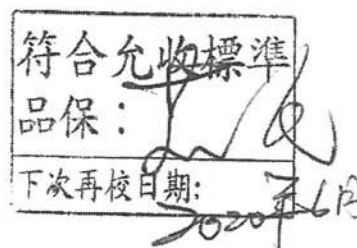 符合允收標準
品保：
下次再校日期：
2020年6月